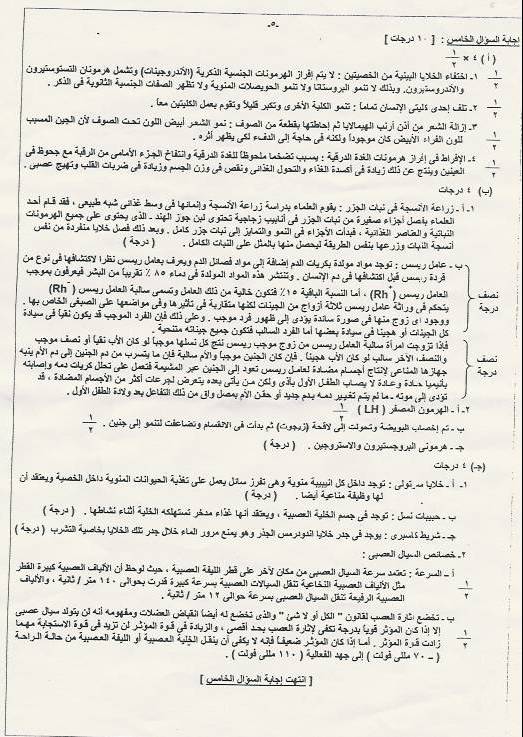 -٥-
إجابة السؤال الخامس : [ ١٠ درجات ]
( أ ) ٤ × ١/٢
١- اختفاء الخلايا البينية من الخصيتين : لا يتم إفراز الهرمونات الجنسية الذكرية (الأندروجينات) وتشمل هرمونات التستوستيرون
والأندروستيرون, وبذلك لا تنمو البروستاتا ولا تنمو الحويصلات المنوية ولا تظهر الصفات الجنسية الثانوية فى الذكر .
٢- تلف إحدى كليتى الإنسان تماماً : تنمو الكلية الأخرى وتكبر قليلاً وتقوم بعمل الكليتين معاً .
٣- إزالة الشعر من أذن أرنب الهيمالايا ثم إحاطتها بقطعة من الصوف : نمو الشعر أبيض اللون تحت الصوف لأن الجين المسبب
للون الفراء الأبيض كان موجوداً ولكنه فى حاجة إلى الدفء لكى يظهر أثره .
٤- الإفراط فى إفراز هرمونات الغدة الدرقية : يسبب تضخما ملحوظاً للغدة الدرقية وانتفاخ الجزء الأمامى من الرقبة مع جحوظ فى
العينين وينتج عن ذلك زيادة فى أكسدة الغذاء والتحول الغذائى ونقص فى وزن الجسم وزيادة فى ضربات القلب وتهيج عصبى .
(ب) ٤ درجات
١- أ - زراعة الأنسجة فى نبات الجزر : يقوم العلماء بدراسة زراعة الأنسجة وإنمائها فى وسط غذائى شبه طبيعى ، فقد قام أحد
العلماء بفصل أجزاء صغيرة من نبات الجزر فى أنابيب زجاجية تحتوى لبن جوز الهند - الذى يحتوى على جميع الهرمونات
النباتية والعناصر الغذائية ، فبدأت الأجزاء فى النمو والتمايز إلى نبات جزر كامل . وبعد ذلك فصل خلايا منفردة من نفس
أنسجة النبات وزرعها بنفس الطريقة ليحصل منها بالمثل على النبات الكامل . ( درجة )
ب - عامل ريسس : توجد مواد مولدة بكريات الدم إضافة إلى مواد فصائل الدم ويعرف بعامل ريسس نظرا لاكتشافها فى نوع من
قردة ريسس قبل اكتشافها فى دم الإنسان . وتنتشر هذه المواد المولدة فى دماء ٨٥ ٪ تقريباً من البشر فيعرفون بموجب
العامل ريسس (Rh+) ، أما النسبة الباقية ١٥٪ فتكون خالية من ذلك العامل وتسمى سالبة العامل ريسس (Rh-)
نصف درجة
يتحكم فى وراثة عامل ريسس ثلاثة أزواج من الجينات لكنها متقاربة فى تأثيرها وفى مواضعها على الصبغى الخاص بها .
ووجود أى زوج منها فى صورة سائدة يؤدى إلى ظهور فرد موجب . وعلى ذلك فإن الفرد الموجب قد يكون نقياً فى سيادة
كل الجينات أو هجينا فى سيادة بعضها أما الفرد السالب فتكون جميع جيناته متنحية .
فإذا تزوجت امرأة سالبة العامل ريسس من زوج موجب ريسس نتج كل نسلها موجباً لو كان الأب نقياً أو نصف موجب
والنصف الآخر سالب لو كان الأب هجيناً . فإن كان الجنين موجباً والأم سالبة فإن ما يتسرب من دم الجنين إلى دم الأم ينبه
جهازها المناعى لإنتاج أجسام مضادة لعامل ريسس تعود إلى الجنين عبر المشيمة فتصل على تحلل كريات دمه وإصابته
نصف درجة
بأنيميا حادة وعادة لا يصاب الطفل الأول بأذى ولكن من يأتى بعده يتعرض لجرعات أكثر من الأجسام المضادة ، قد
تؤدى إلى موته - ما لم يتم تغيير دمه بدم جديد أو حقن الأم بمصل واق من ذلك التفاعل بعد ولادة الطفل الأول .
٢- أ - الهرمون المصفر ( LH ) ١/٢
ب - تم إخصاب البويضة وتحولت إلى لاقحة (زيجوت) ثم بدأت فى الانقسام وتضاعفت لتنمو إلى جنين . ١/٢
جـ - هرمونى البروجستيرون والاستروجين . ( درجة )
(جـ) ٤ درجات
١- أ - خلايا سرتولى : توجد داخل كل انيبيبة منوية وهى تفرز سائل يعمل على تغذية الحيوانات المنوية داخل الخصية ويعتقد أن
لها وظيفة مناعية أيضا . ( درجة )
ب - حبيبات نسل : توجد فى جسم الخلية العصبية ، ويعتقد أنها غذاء مدخر تستهلكه الخلية أثناء نشاطها . ( درجة )
جـ - شريط كاسبرى : يوجد فى جدر خلايا الاندودرمس الجذر وهو يمنع مرور الماء خلال جدر تلك الخلايا بخاصية التشرب ( درجة )
٢- خصائص السيال العصبى :
أ - السرعة : تعتمد سرعة السيال العصبى من مكان لآخر على قطر الليفة العصبية ، حيث لوحظ أن الألياف العصبية كبيرة القطر
١/٢ مثل الألياف العصبية النخاعية تنقل السيالات العصبية بسرعة كبيرة قدرت بحوالى ١٤٠ متر / ثانية ، والألياف
العصبية الرفيعة تنقل السيال العصبى بسرعة حوالى ١٢ متر / ثانية .
ب - تخضع إثارة العصب لقانون " الكل أو لا شئ " والذى تخضع له أيضاً انقباض العضلات ومفهومه أنه لن يتولد سيال عصبى
إلا إذا كان المؤثر قوياً بدرجة تكفى لإثارة العصب بحد أقصى ، والزيادة فى قوة المؤثر لن تزيد فى قوة الاستجابة مهما
١/٢ زادت قوة المؤثر . أما إذا كان المؤثر ضعيفاً فإنه لا يكفى أن ينقل الخلية العصبية أو الليفة العصبية من حالة الراحة
( – ٧٠ مللى فولت ) إلى جهد الفعالية ( ١١٠ مللى فولت ) .
[ انتهت إجابة السؤال الخامس ]